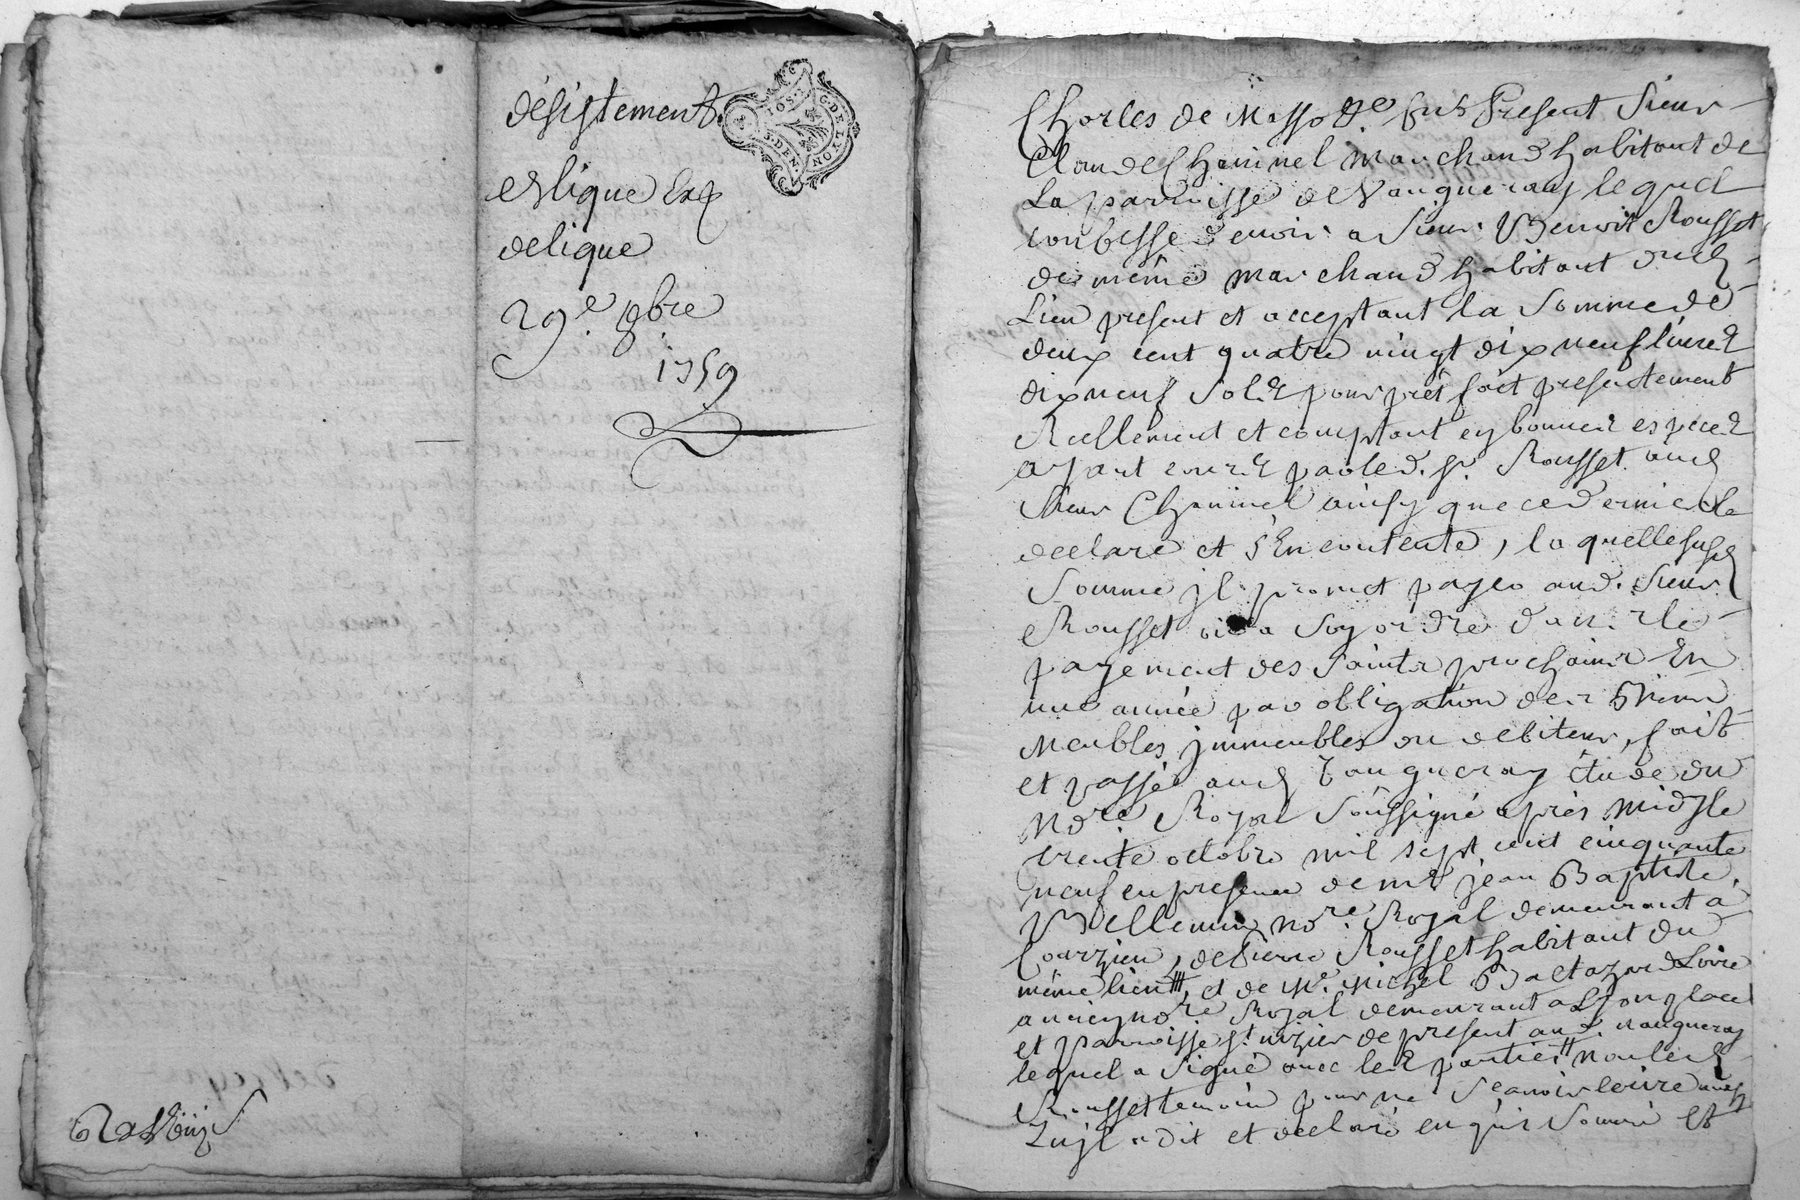 désistement
10 S. 3
G. DE LYON
S. DEN
et lique Exp
delique
29e 8bre
1759
Charles de Masso &e fut Présent Sieur
Claude Chaninel marchand habitant de
La parroisse de Vaugneray lequel
confesse devoir a Sieur Benoit Rousset
de même marchand habitant dud
Lieu présent et acceptant la Somme de
deux cent quatre vingt dix neuf livres
dix neuf Sols pour prêt fait présentement
Reellement et comptant en bonnes especes
ayant cours par led. Sr. Rousset aud
Sieur Chaninel ainsy que ce dernier le
declare et s'En contente, la quelle susd
Somme jl promet payer aud. Sieur
Rousset ou a Son ordre dans le
payement des Saints prochains En
une année par obligation des Biens
Meubles jmmeubles du debiteur, fait
et passé aud Vaugneray étude du
Nore Royal Soussigné après midy le
trente octobre mil sept cent cinquante
neuf en presence de me jean Baptiste
Vellemin nore. Royal demeurant à
Courzieu, de Pierre Rousset habitant du
même lieu et de Me. Michel Baltazard
ancien nore Royal demeurant a Lyon place
et parroisse St. nizier de present aud. vaugneray
lequel a Signé avec les parties non led
Rousset temoin pour ne Scavoir écrire
Luy a dit et declaré enquis Sommé et